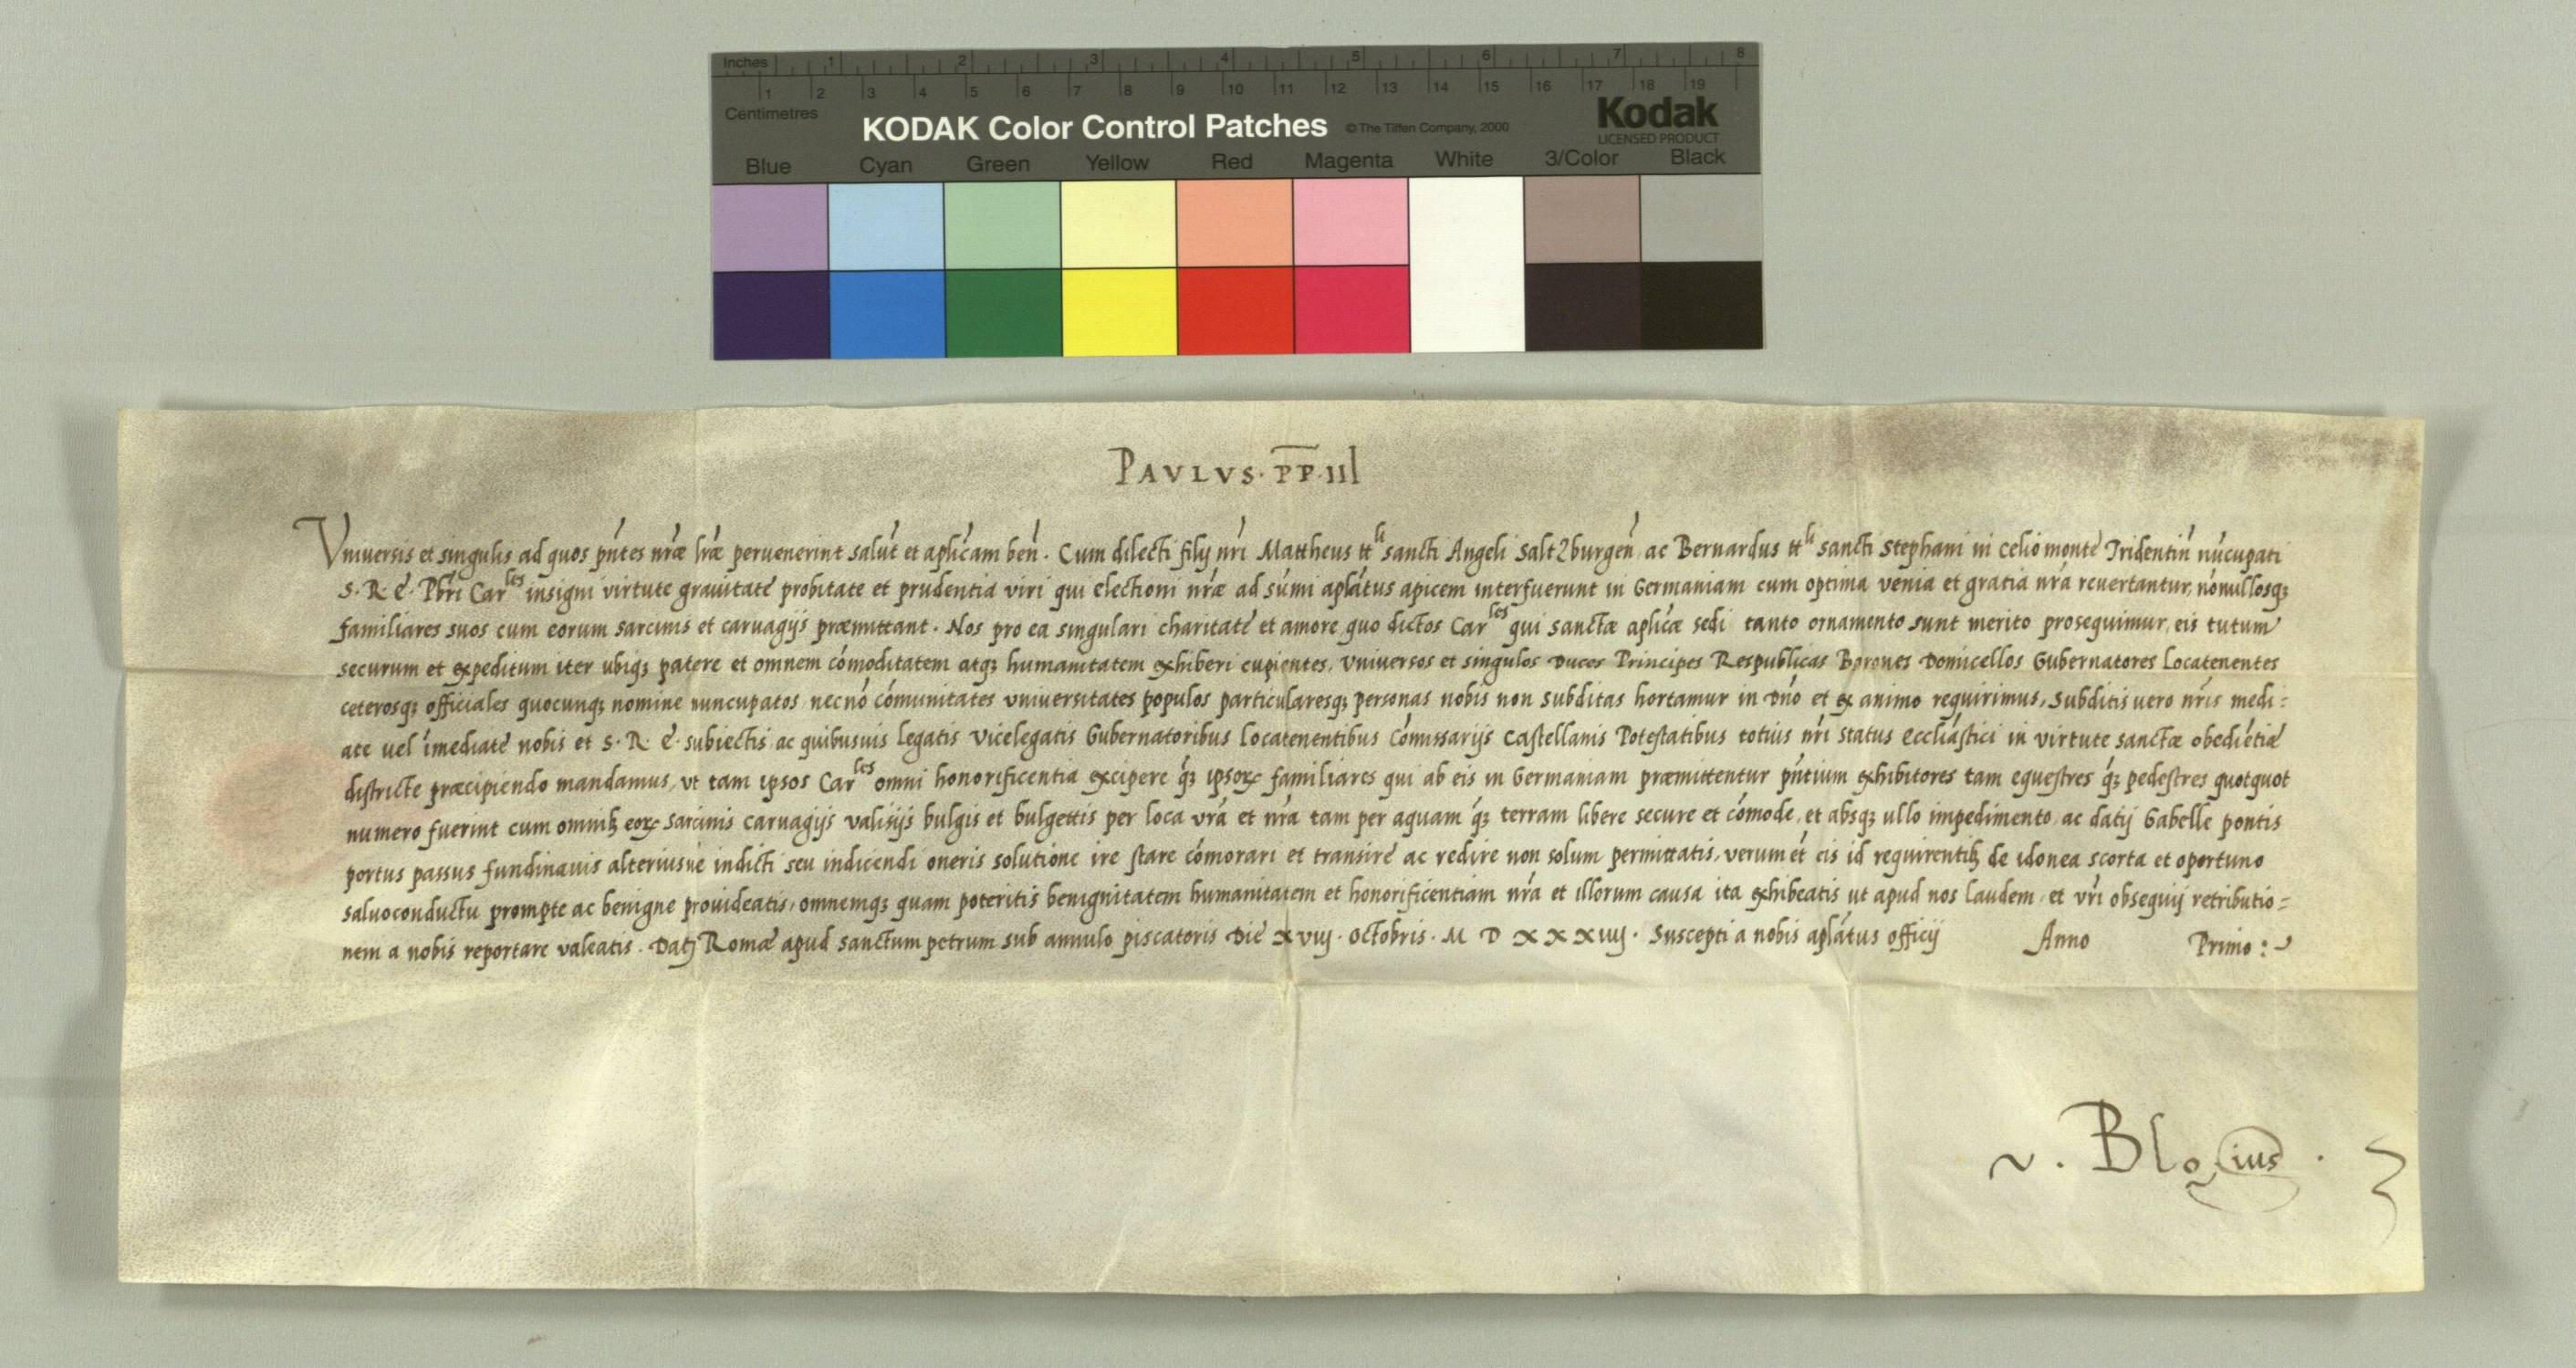 Inches 1 2 3 4 5 6 7 8
1 2 3 4 5 6 7 8 9 10 11 12 13 14 15 16 17 18 19
Centimetres
KODAK Color Control Patches © The Tiffen Company, 2000
Kodak
LICENSED PRODUCT
Blue Cyan Green Yellow Red Magenta White 3/Color Black
PAVLVS. PP. III
Vniuersis et singulis ad quos pn̄tes nr̄æ lr̄æ peruenerint salut̄ et aplic̄am ben̄. Cum dilecti filij nr̄i Mattheus tt^li sancti Angeli Saltzburgen̄ ac Bernardus tt^li sancti Stephani in celio monte Tridentin̄ nūcupati
S. R. E. Pbr̄i Car^les insigni virtute grauitate probitate et prudentia viri qui electioni nr̄æ ad sūmi aplātus apicem interfuerunt in Germaniam cum optima venia et gratia nr̄a reuertantur, nōnullosq3
familiares suos cum eorum sarcinis et caruagijs præmittant. Nos pro ea singulari charitate et amore quo dictos Car^les qui sanctæ aplicæ sedi tanto ornamento sunt merito prosequimur, eis tutum
securum et expeditum iter ubiq3 patere et omnem cōmoditatem atq3 humanitatem exhiberi cupientes, vniuersos et singulos Duces Principes Respublicas Barones Domicellos Gubernatores Locatenentes
ceterosq3 officiales quocunq3 nomine nuncupatos necnō cōmunitates vniuersitates populos particularesq3 personas nobis non subditas hortamur in Dnō et ex animo requirimus, Subditis uero nr̄is medi:
ate uel īmediate nobis et S. R. E. subiectis ac quibusuis Legatis Vicelegatis Gubernatoribus Locatenentibus Cōmissarijs Castellanis Potestatibus totius nr̄i Status Eccliāstici in virtute sanctæ obediētiæ
districte præcipiendo mandamus, vt tam ipsos Car^les omni honorificentia excipere q̄3 ipsorꝝ familiares qui ab eis in Germaniam præmittentur pn̄tium exhibitores tam equestres q̄3 pedestres quotquot
numero fuerint cum omnib3 eorꝝ sarcinis caruagijs valisijs bulgis et bulgettis per loca vr̄a et nr̄a tam per aquam q̄3 terram libere secure et cōmode, et absq3 ullo impedimento, ac datij Gabelle pontis
portus passus fundinauis alteriusue indicti seu indicendi oneris solutione ire stare cōmorari et transire ac redire non solum permittatis, verum ēt eis id requirentib3 de idonea scorta et oportuno
saluoconductu prompte ac benigne prouideatis, omnemq3 quam poteritis benignitatem humanitatem et honorificentiam nr̄a et illorum causa ita exhibeatis ut apud nos laudem, et vr̄i obsequij retributio=
nem a nobis reportare valeatis. Datȷ Romæ apud sanctum petrum sub annulo piscatoris Die xviij. Octobris. M D x x x iiij. Suscepti a nobis aplātus officij Anno Primo :~
Blosius.